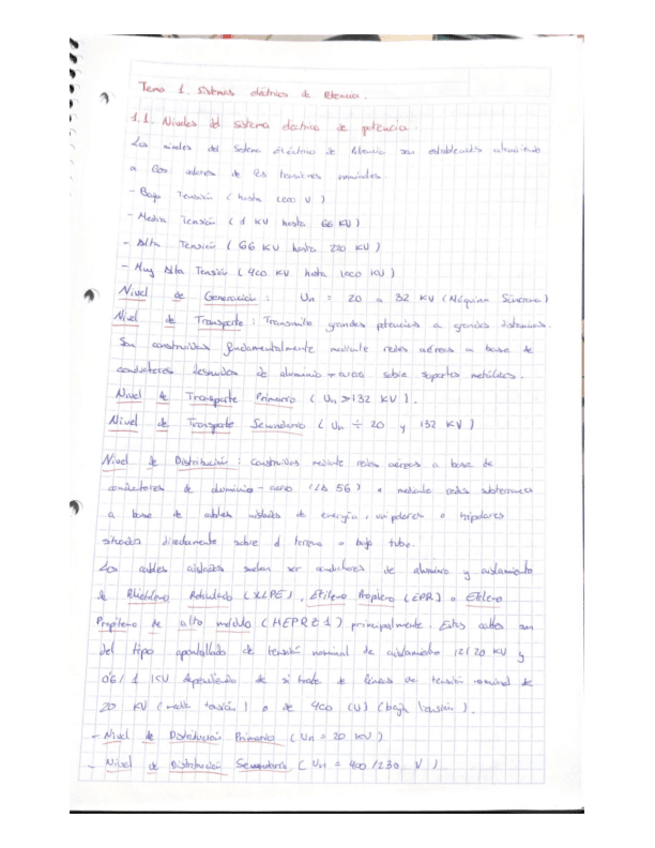 Tema 1. Sistemas eléctricos de Potencia.
1.1. Niveles del sistema electrico de potencia.
Los niveles del Sistema Eléctrico de Potencia son establecidos atendiendo
a los valores de las tensiones nominales.
- Baja Tensión (hasta 1000 V)
- Media Tensión (1 KV hasta 66 KV)
- Alta Tensión (66 KV hasta 220 KV)
- Muy Alta Tensión (400 KV hasta 1000 KV)
Nivel de Generación: Un = 20 a 32 KV (Máquina Síncrona)
Nivel de Transporte: Transmite grandes potencias a grandes distancias.
Son construidas fundamentalmente mediante redes aéreas a base de
conductores desnudos de aluminio-acero sobre soportes metálicos.
Nivel de Transporte Primario (Un > 132 KV).
Nivel de Transporte Secundario (Un ÷ 20 y 132 KV)
Nivel de Distribución: Construidas mediante redes aéreas a base de
conductores de aluminio-acero (LA 56) o mediante redes subterraneas
a base de cables aislados de energía, unipolares o tripolares
situados directamente sobre el terreno o bajo tubo.
Los cables aislados suelen ser conductores de aluminio y aislamiento
de Polietileno Reticulado (XLPE), Etileno Propileno (EPR) o Etileno
Propileno de alto módulo (HEPRZ1) principalmente. Estos cables son
del tipo apantallado de tensión nominal de aislamiento 12/20 KV y
0'6/1 KV dependiendo de si trate de líneas de tensión nominal de
20 KV (media tensión) o de 400 (V) (baja tensión).
- Nivel de Distribución Primario (Un = 20 KV)
- Nivel de Distribución Secundario (Un = 400/230 V)